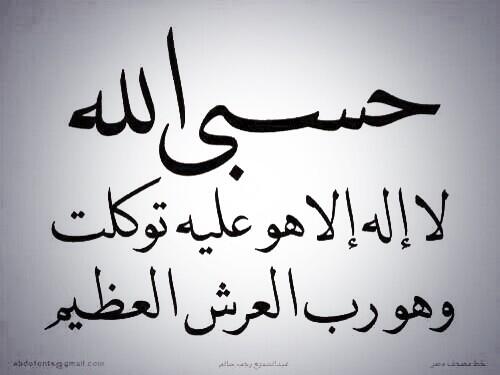 حسبي الله
لا إله إلا هو عليه توكلت
وهو رب العرش العظيم
abdofonts@gmail.com عبدالسميع رجب سالم خط مصحف مصر